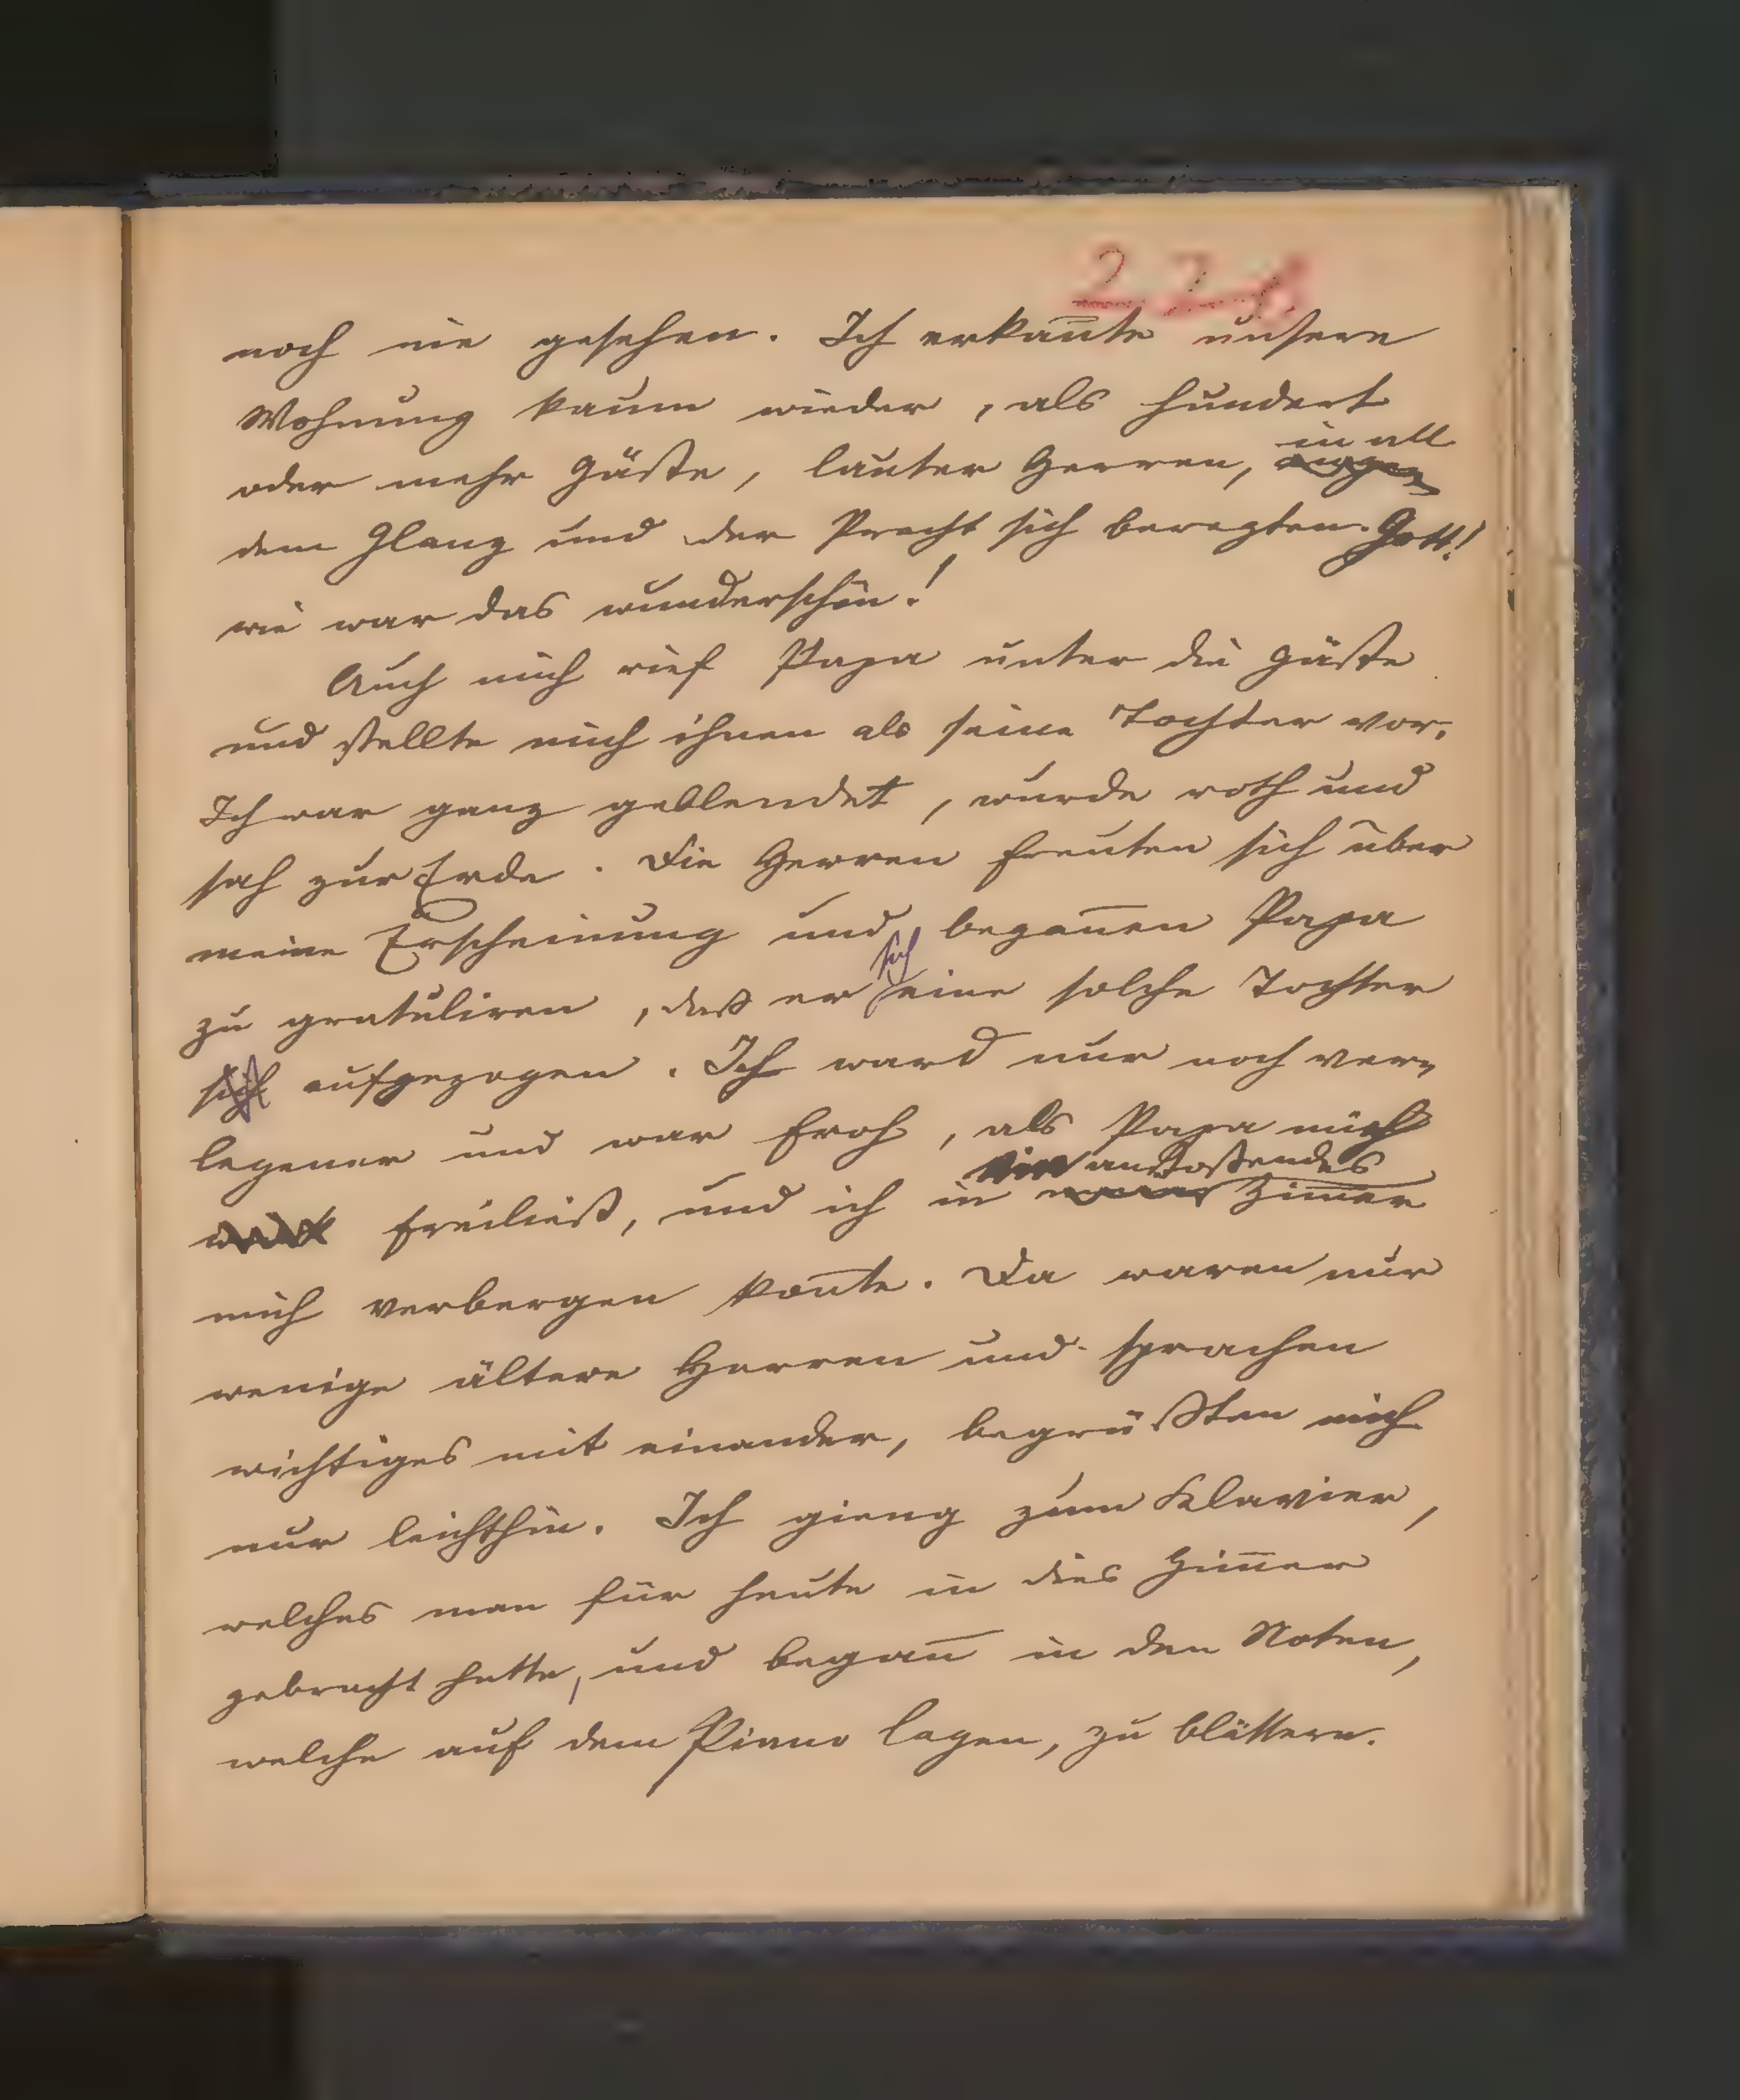 noch nie gesehen. Ich erkan̄te unsere
Wohnung kaum wieder, als hundert
in all
oder mehr Gäste, lauter Herren,
dem Glanz und der Pracht sich bewegten. Gott!
wie war das wunderschön!
Auch mich rief Papa unter die Gäste
und stellte mich ihnen als seine Tochter vor.
Ich war ganz geblendet, wurde roth und
sah zur Erde. Die Herren freuten sich über
meine Erscheinung und began̄en Papa
sich
zu gratuliren, daß er eine solche Tochter
sich aufgezogen. Ich ward nur noch ver-
legener und war froh, als Papa mich
ein anstoßendes
freiließ, und ich in Zim̄er
mich verbergen kon̄te. Da waren nur
wenige ältere Herren und sprachen
wichtiges mit einander, begrüßten mich
nur leichthin. Ich gieng zum Klavier,
welches man für heute in dies Zim̄er
gebracht hatte, und began̄ in den Noten,
welche auf dem Piano lagen, zu blättern.